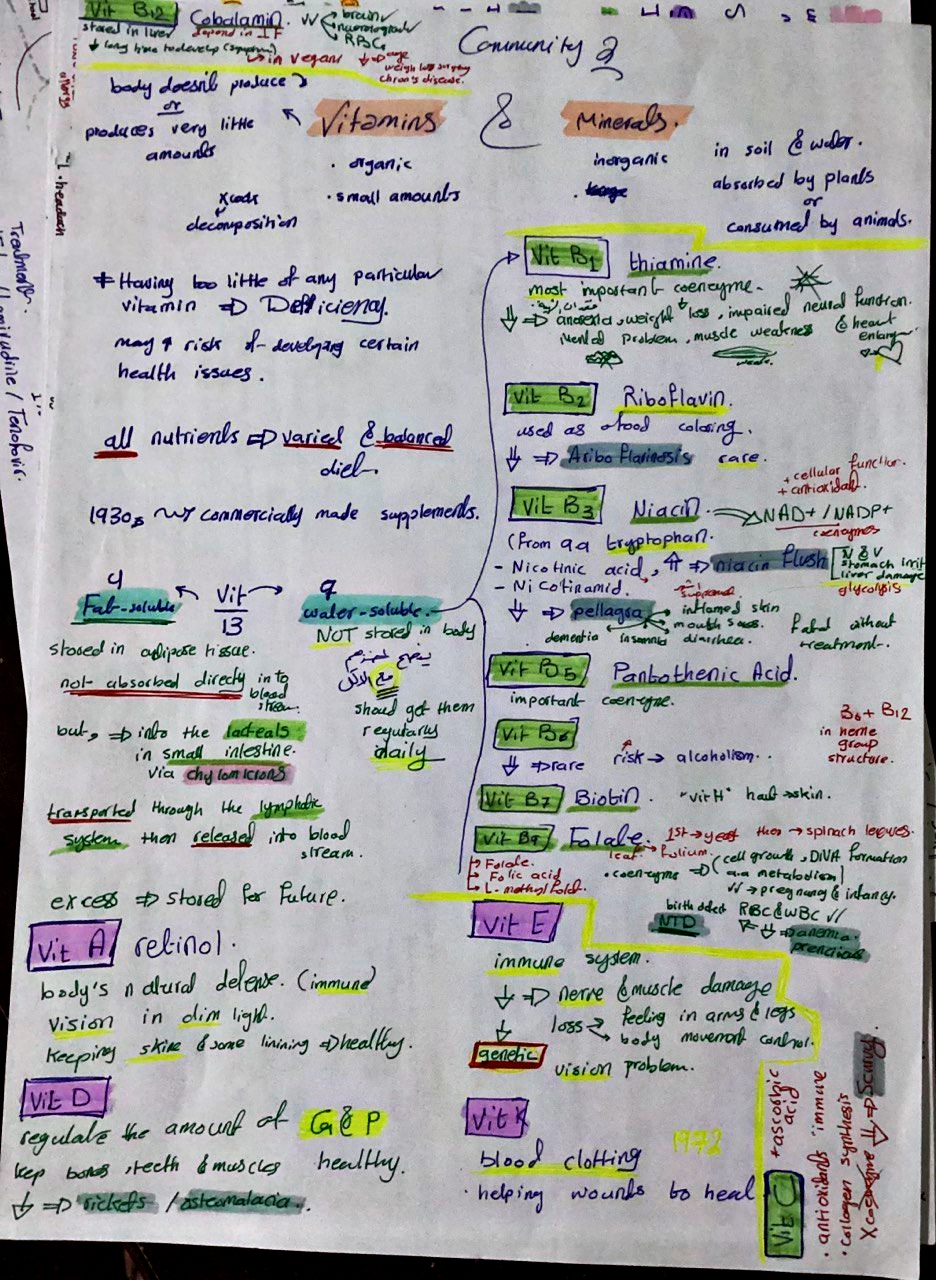 Vit B12 Cobalamin. VV
brain
neurological
RBCs
stored in liver depend in IF
↓ long time to develop (symptom)
↳ in vegan
↓ ⇒ age
weight loss surgery
chron's disease.
Community 2
Vitamins & Minerals.
body doesn't produce
or
produces very little
amounts
• organic
• small amounts
decomposition
inorganic
in soil & water.
absorbed by plants
or
consumed by animals.
• headach
Treatment.
/ Tenofovir.
# Having too little of any particular
vitamin ⇒ Defficiency.
may ↑ risk of developing certain
health issues.
all nutrients ⇒ varied & balanced
diet.
1930s ~> commercially made supplements.
4 Vit 9
Fat-soluble 13 water-soluble
stored in adipose tissue.
not absorbed directy into
blood
stream.
but, ⇒ into the lacteals
in small intestine.
via chylomicrons
transported through the lymphatic
system then released into blood
stream.
excess ⇒ stored for future.
NOT stored in body
مع الاكل
should get them
regularly
daily
Vit A retinol.
body's natural defense. (immune)
Vision in dim light.
keeping skine & some linining ⇒ healthy.
Vit D
regulate the amount of Ca & P
kep bones, teeth & muscles healthy.
↓ ⇒ rickets / osteomalacia.
Vit B1 thiamine.
most important coenzyme.
↓ ⇒ anorexia, weight loss, impaired neural function.
mental problem, muscle weakness & heart
enlarg
Vit B2 Riboflavin.
used as food coloring.
↓ ⇒ Ariboflavinosis rare.
Vit B3 Niacin → NAD+ / NADP+
+ cellular function.
+ antioxidant.
coenzymes
(from aa tryptophan.
- Nicotinic acid, ↑ ⇒ niacin flush
N & V
stomach irrit
liver damage
glycolysis
- Nicotinamid.
↓ ⇒ pellagra
inflamed skin
mouth sores.
dementia insomnia diarrhea.
Fatal without
treatment.
Vit B5 Pantothenic Acid.
important coenzyme.
Vit B6
↓ ⇒ rare risk → alcoholism.
B6 + B12
in heme
group
structure.
Vit B7 Biotin. "vit H" haut → skin.
Vit B9 Folate. 1st → yeast then → spinach leaves.
leaf → folium.
Folate.
Folic acid
L-methylfolat.
• coenzyme ⇒ (cell growth, DNA formation
a.a metabolism)
VV → pregnancy & infancy.
birth defect RBC & WBC VV
NTD ↓ ⇒ anemia
prencious
Vit E
immune system.
↓ ⇒ nerve & muscle damage
loss feeling in arms & legs
body movement control.
genetic vision problem.
Vit K 1972
blood clotting
• helping wounds to heal
Vit C
+ ascorbic
acid
• antioxidants "immune
• collagen synthesis
X coenzyme ↓ ⇒ Scurvy.